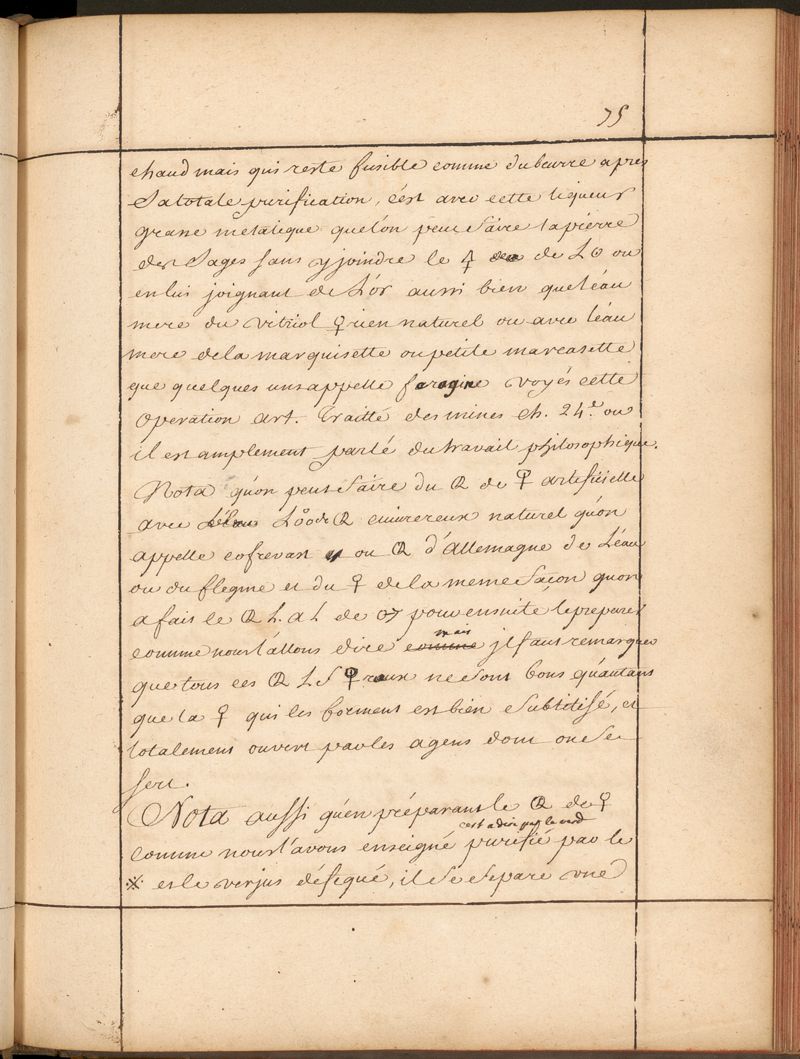 75
chaud mais qui reste fusible comme du beurre apres
Sa totale purification, c'est avec cette liqueur
grasse metalique quel'on peut faire la pierre
des Sages sans y joindre le ☿ de L☉ ou
en lui joignant de L'or aussi bien que l'eau
mere du vitriol ♀rien naturel ou avec l'eau
mere de la marquisette ou petite marcasette
que quelques uns appelle voyés cette
operation art. Traitté des mines ch. 24.e ou
il est amplement parlé du travail philosophique.
Nota qu'on peut faire du de ♀ artificielle
avec cuivrereux naturel qu'on
appelle ou d'Allemagne de L'eau
ou du flegme et du ♀ de la meme façon quon
a fait le de pour ensuite le preparer
comme nous l'allons dire comme mais jl faut remarquer
que tous ces ne sont bons qu'autant
que la ♀ qui les forment est bien Subtilisé, et
totalement ouvert par les agens dont on se
sert.
Nota aussi qu'en préparant le de ♀
comme nous l'avons enseigné purifié c'est a dire par le par le
※ et le verjus deséqué, il se separe une